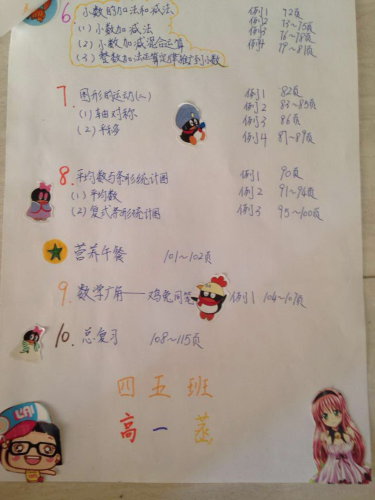 6 小数的加法和减法 例1 72页
(1) 小数加减法 例2 73~75页
(2) 小数加减混合运算 例3 76~78页
(3) 整数加法运算定律推广到小数 例4 79~81页
7. 图形的运动(二) 例1 82页
(1) 轴对称 例2 83~85页
(2) 平移 例3 86页
例4 87~89页
8. 平均数与条形统计图 例1 90页
(1) 平均数 例2 91~94页
(2) 复式条形统计图 例3 95~100页
营养午餐 101~102页
9. 数学广角——鸡兔同笼 例1 104~107页
10. 总复习 108~115页
四五班
高一菡